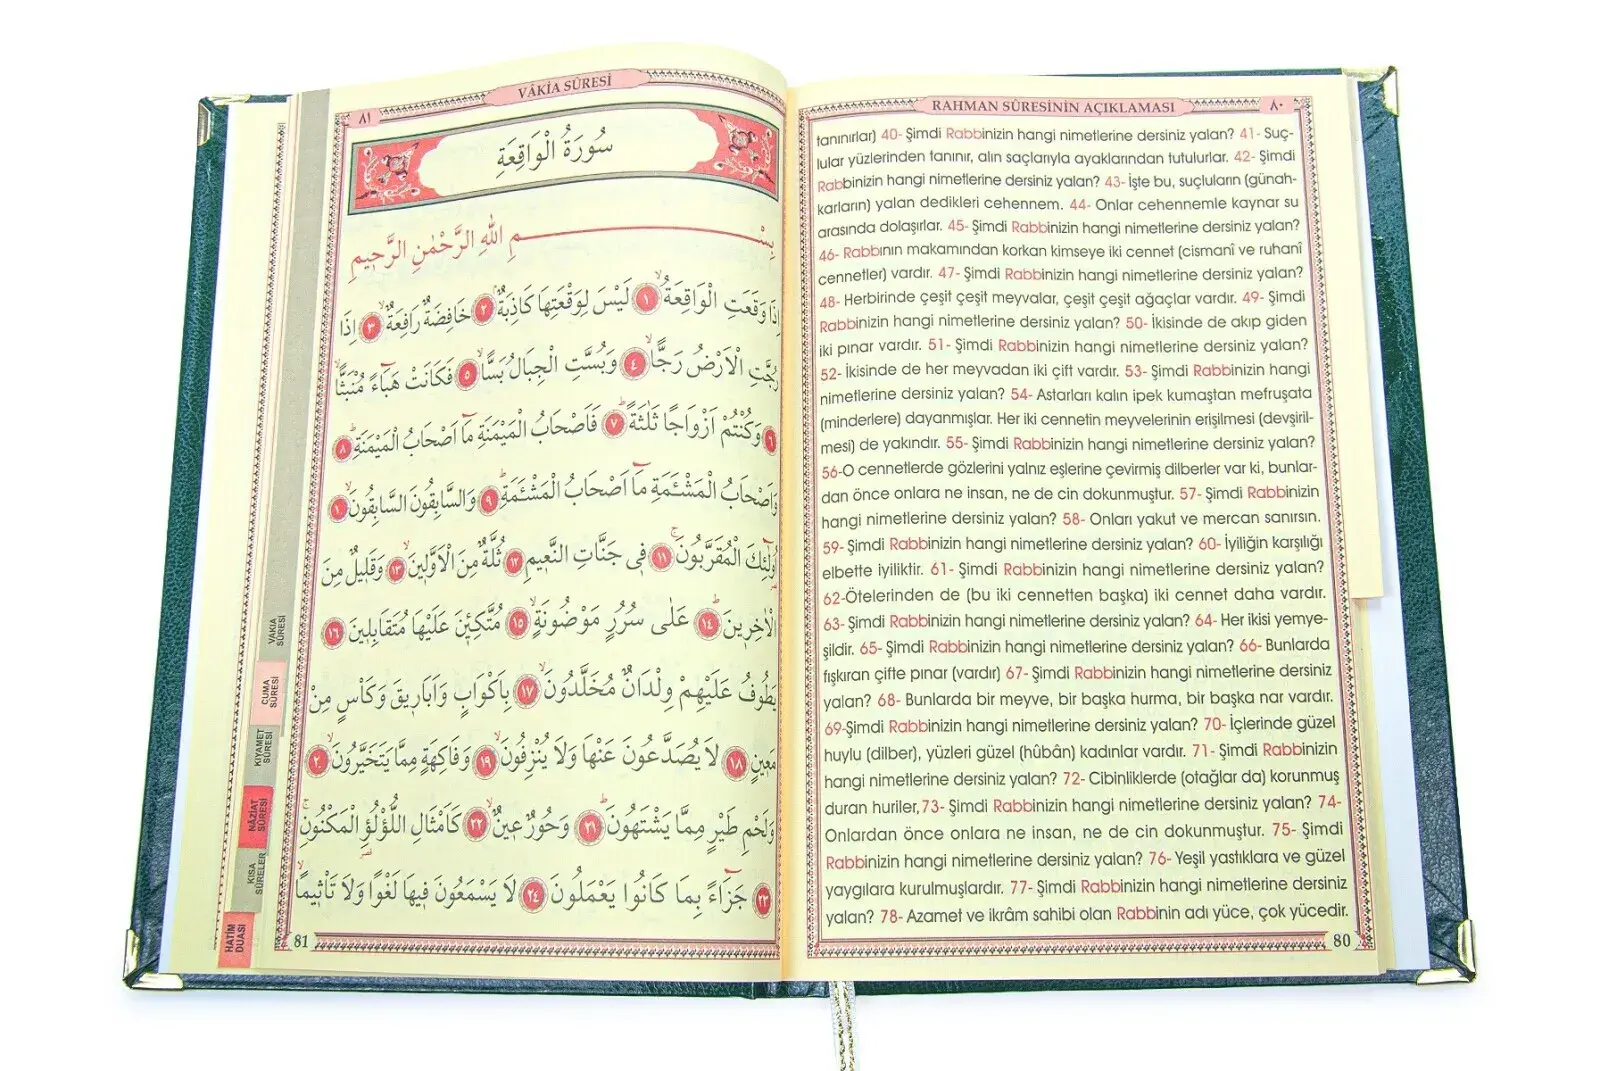 RAHMAN SÛRESİNİN AÇIKLAMASI
٨٠
tanınırlar) 40- Şimdi Rabbinizin hangi nimetlerine dersiniz yalan? 41- Suç-
lular yüzlerinden tanınır, alın saçlarıyla ayaklarından tutulurlar. 42- Şimdi
Rabbinizin hangi nimetlerine dersiniz yalan? 43- İşte bu, suçluların (günah-
karların) yalan dedikleri cehennem. 44- Onlar cehennemle kaynar su
arasında dolaşırlar. 45- Şimdi Rabbinizin hangi nimetlerine dersiniz yalan?
46- Rabbının makamından korkan kimseye iki cennet (cismanî ve ruhanî
cennetler) vardır. 47- Şimdi Rabbinizin hangi nimetlerine dersiniz yalan?
48- Herbirinde çeşit çeşit meyvalar, çeşit çeşit ağaçlar vardır. 49- Şimdi
Rabbinizin hangi nimetlerine dersiniz yalan? 50- İkisinde de akıp giden
iki pınar vardır. 51- Şimdi Rabbinizin hangi nimetlerine dersiniz yalan?
52- İkisinde de her meyvadan iki çift vardır. 53- Şimdi Rabbinizin hangi
nimetlerine dersiniz yalan? 54- Astarları kalın ipek kumaştan mefruşata
(minderlere) dayanmışlar. Her iki cennetin meyvelerinin erişilmesi (devşiril-
mesi) de yakındır. 55- Şimdi Rabbinizin hangi nimetlerine dersiniz yalan?
56-O cennetlerde gözlerini yalnız eşlerine çevirmiş dilberler var ki, bunlar-
dan önce onlara ne insan, ne de cin dokunmuştur. 57- Şimdi Rabbinizin
hangi nimetlerine dersiniz yalan? 58- Onları yakut ve mercan sanırsın.
59- Şimdi Rabbinizin hangi nimetlerine dersiniz yalan? 60- İyiliğin karşılığı
elbette iyiliktir. 61- Şimdi Rabbinizin hangi nimetlerine dersiniz yalan?
62-Ötelerinden de (bu iki cennetten başka) iki cennet daha vardır.
63- Şimdi Rabbinizin hangi nimetlerine dersiniz yalan? 64- Her ikisi yemye-
şildir. 65- Şimdi Rabbinizin hangi nimetlerine dersiniz yalan? 66- Bunlarda
fışkıran çifte pınar (vardır) 67- Şimdi Rabbinizin hangi nimetlerine dersiniz
yalan? 68- Bunlarda bir meyve, bir başka hurma, bir başka nar vardır.
69-Şimdi Rabbinizin hangi nimetlerine dersiniz yalan? 70- İçlerinde güzel
huylu (dilber), yüzleri güzel (hûbân) kadınlar vardır. 71- Şimdi Rabbinizin
hangi nimetlerine dersiniz yalan? 72- Cibinliklerde (otağlar da) korunmuş
duran huriler,73- Şimdi Rabbinizin hangi nimetlerine dersiniz yalan? 74-
Onlardan önce onlara ne insan, ne de cin dokunmuştur. 75- Şimdi
Rabbinizin hangi nimetlerine dersiniz yalan? 76- Yeşil yastıklara ve güzel
yaygılara kurulmuşlardır. 77- Şimdi Rabbinizin hangi nimetlerine dersiniz
yalan? 78- Azamet ve ikrâm sahibi olan Rabbinin adı yüce, çok yücedir.
80
VÂKİA SÛRESİ
٨١
سُورَةُ الْوَاقِعَةِ
بِسْمِ اللهِ الرَّحْمٰنِ الرَّحِيمِ
اِذَا وَقَعَتِ الْوَاقِعَةُ ١ لَيْسَ لِوَقْعَتِهَا كَاذِبَةٌ ٢ خَافِضَةٌ رَافِعَةٌ ٣ اِذَا
رُجَّتِ الْاَرْضُ رَجًّا ٤ وَبُسَّتِ الْجِبَالُ بَسًّا ٥ فَكَانَتْ هَبَاءً مُنْبَثًّا
٦ وَكُنْتُمْ اَزْوَاجًا ثَلٰثَةً ٧ فَاَصْحَابُ الْمَيْمَنَةِ مَا اَصْحَابُ الْمَيْمَنَةِ ٨
وَاَصْحَابُ الْمَشْـَٔمَةِ مَا اَصْحَابُ الْمَشْـَٔمَةِ ٩ وَالسَّابِقُونَ السَّابِقُونَ ١٠
اُولٰئِكَ الْمُقَرَّبُونَ ١١ فِي جَنَّاتِ النَّعِيمِ ١٢ ثُلَّةٌ مِنَ الْاَوَّلِينَ ١٣ وَقَلِيلٌ مِنَ
الْاٰخِرِينَ ١٤ عَلٰى سُرُرٍ مَوْضُونَةٍ ١٥ مُتَّكِـِٔينَ عَلَيْهَا مُتَقَابِلِينَ ١٦
يَطُوفُ عَلَيْهِمْ وِلْدَانٌ مُخَلَّدُونَ ١٧ بِاَكْوَابٍ وَاَبَارِيقَ وَكَأْسٍ مِنْ
مَعِينٍ ١٨ لَا يُصَدَّعُونَ عَنْهَا وَلَا يُنْزِفُونَ ١٩ وَفَاكِهَةٍ مِمَّا يَتَخَيَّرُونَ ٢٠
وَلَحْمِ طَيْرٍ مِمَّا يَشْتَهُونَ ٢١ وَحُورٌ عِينٌ ٢٢ كَاَمْثَالِ اللُّؤْلُؤِ الْمَكْنُونِ
٢٣ جَزَاءً بِمَا كَانُوا يَعْمَلُونَ ٢٤ لَا يَسْمَعُونَ فِيهَا لَغْوًا وَلَا تَأْثِيمًا
81
VÂKIA
SÛRESİ
CUMA
SÛRESİ
KIYAMET
SÛRESİ
NÂZİAT
SÛRESİ
KISA
SÛRELER
HATİM
DUASI